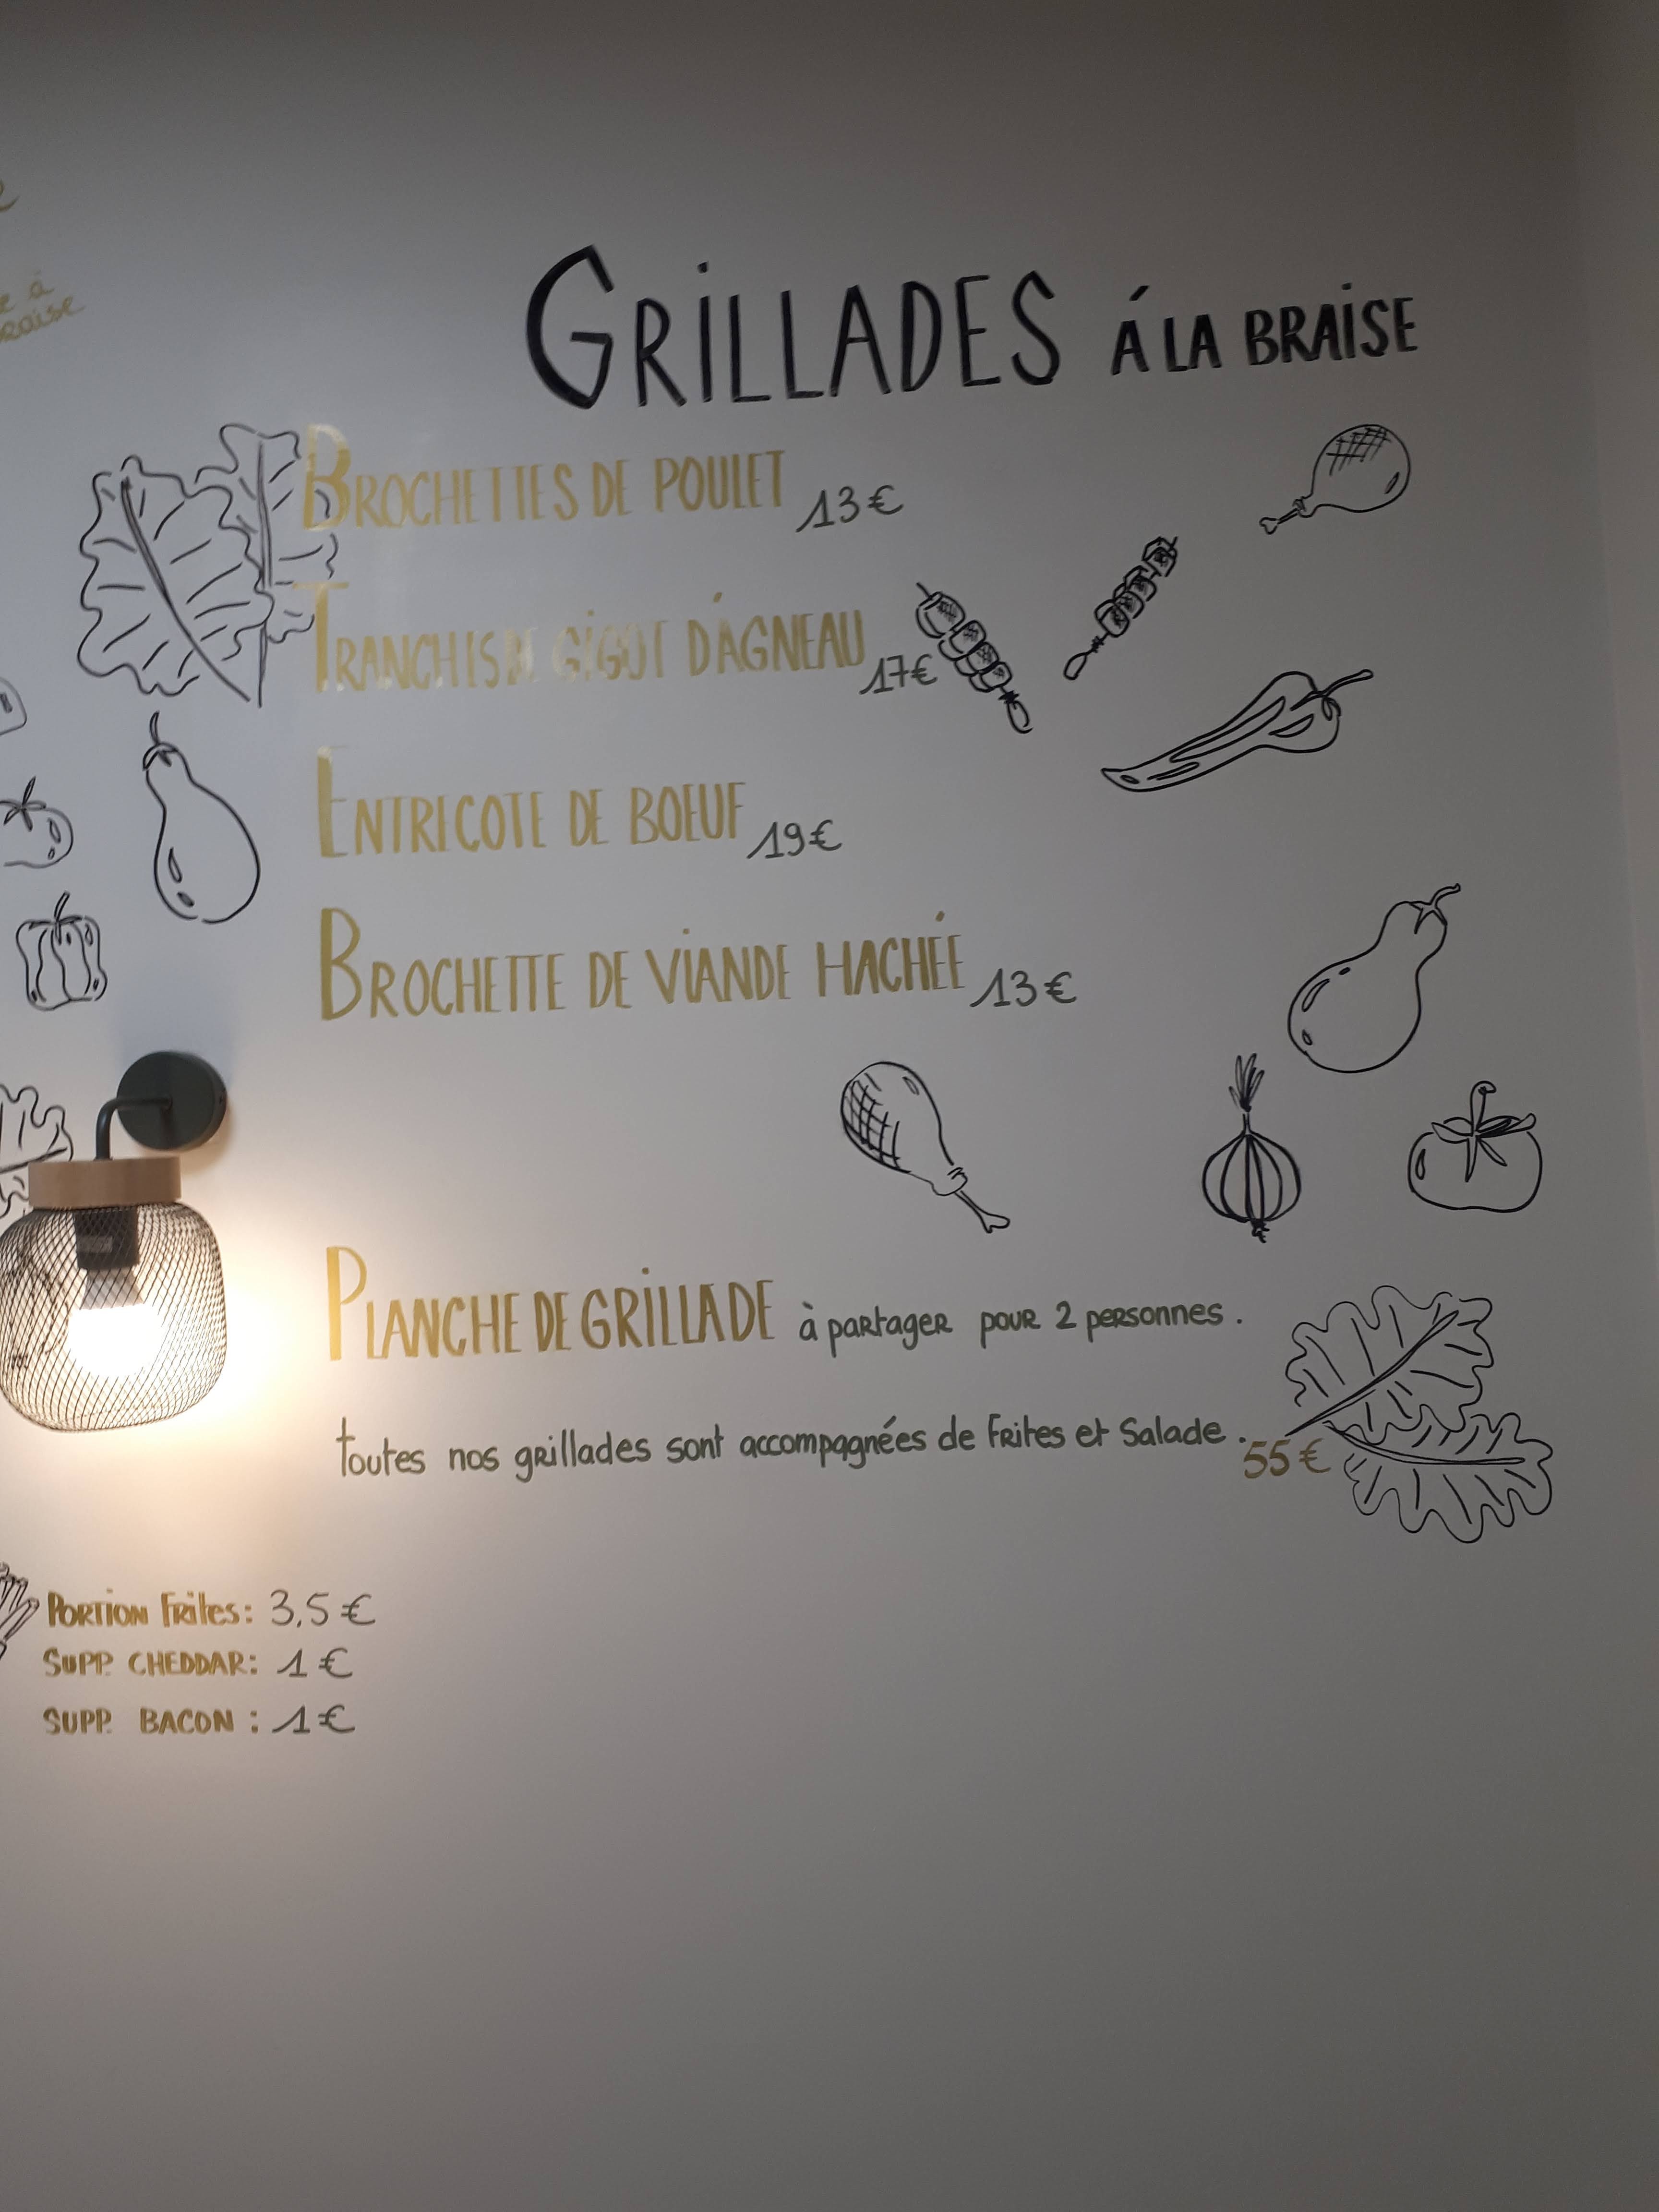 e
e à
raise
GRILLADES Á LA BRAISE
BROCHETTES DE POULET 13€
TRANCHES DE GIGOT D'AGNEAU 17€
ENTRICOTE DE BOEUF 19€
BROCHETTE DE VIANDE HACHÉE 13€
PLANCHE DE GRILLADE à partager pour 2 personnes.
toutes nos grillades sont accompagnées de Frites et Salade. 55€
PORTION FRites: 3,5€
SUPP. CHEDDAR: 1€
SUPP. BACON: 1€